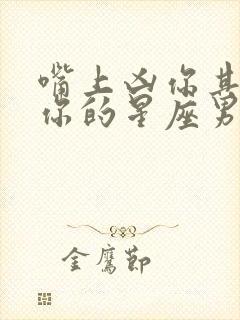 嘴上凶你其
你的星座男
金鹰节